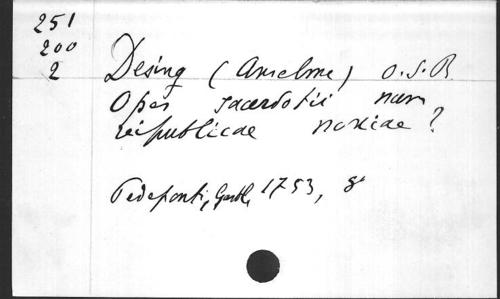 251
200
2
Desing (Anselme) O.S.B.
Opes sacerdotii num
reipublicae noxiae?
Pedeponti, Gastl, 1753, 8°